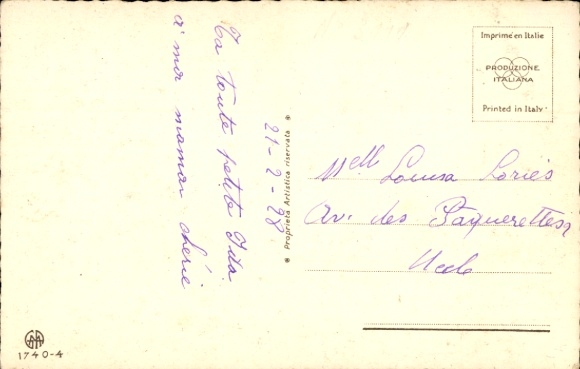 à mon maman chérie
Ta toute petite Ida
21-2-28
* Proprietà Artistica riservata *
Imprimé en Italie
PRODUZIONE
ITALIANA
Printed in Italy
Melle Louisa Loriés
Av. des Paquerettes
Uccle
1740-4